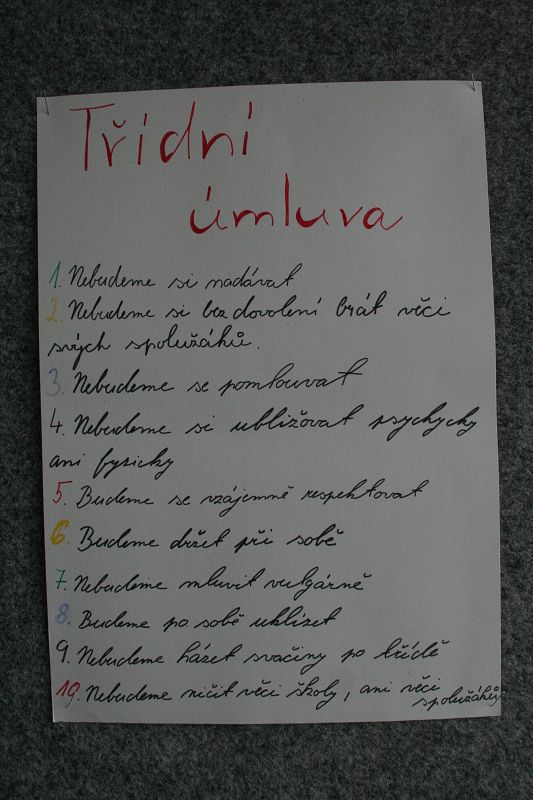 Třídní
úmluva
1. Nebudeme si nadávat
2. Nebudeme si bez dovolení brát věci
svých spolužáků.
3. Nebudeme se pomlouvat
4. Nebudeme si ubližovat psychycky
ani fyzicky
5. Budeme se vzájemně respektovat
6. Budeme držet při sobě
7. Nebudeme mluvit vulgárně
8. Budeme po sobě uklízet
9. Nebudeme házet svačiny po třídě
10. Nebudeme ničit věci školy, ani věci
spolužáků